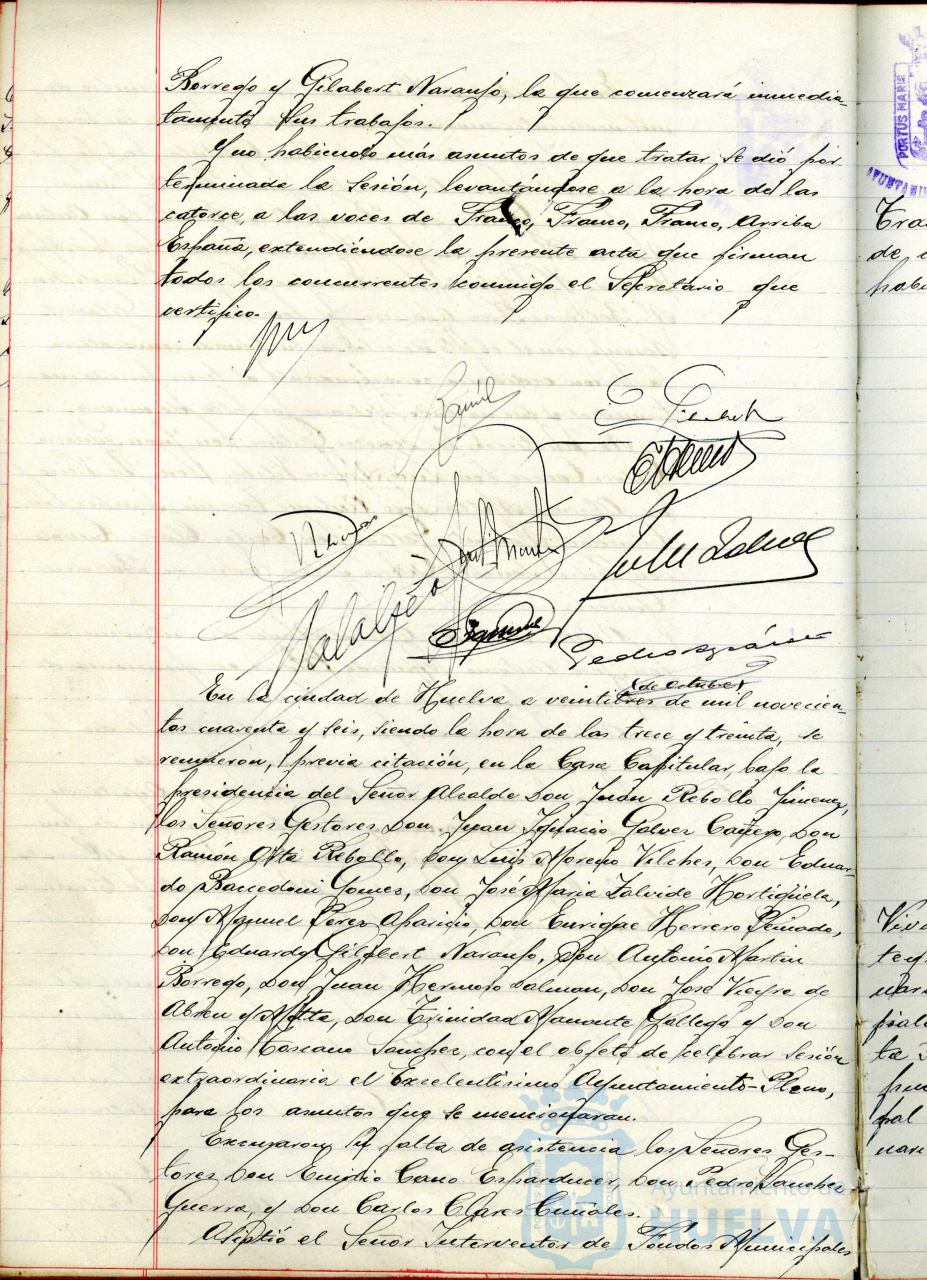 Borrego y Gilabert Naranjo, la que comenzará inmedia-
tamente sus trabajos.
Y no habiendo más asuntos de que tratar se dió por
terminada la Sesión, levantándose a la hora de las
catorce, a las voces de Franco, Franco, Franco, Arriba
España, extendiéndose la presente acta que firman
todos los concurrentes conmigo el Secretario que
certifico.
(de Octubre)
En la ciudad de Huelva a veintitres de mil novecien-
tos cuarenta y seis, siendo la hora de las trece y treinta, se
reunieron, previa citación, en la Casa Capitular, bajo la
presidencia del Señor Alcalde Don Juan Rebollo Jimenez,
los Señores Gestores Don Juan Ignacio Galvez Cañero, Don
Ramón Orta Rebollo, Don Luis Moreno Vilches, Don Eduar-
do Baccedoni Gomez, Don José Maria Zalvide Hortigüela,
Don Manuel Pérez Aparicio, Don Enrique Herrero Peinado,
Don Eduardo Gilabert Naranjo, Don Antonio Martin
Borrego, Don Juan Hermoso Dalman, Don José Vieyra de
Abreu y Motta, Don Trinidad Amante Gallego y Don
Antonio Toscano Sanchez, con el objeto de celebrar Sesión
extraordinaria el Excelentisimo Ayuntamiento-Pleno,
para los asuntos que se mencionaran.
Excusaron su falta de asistencia los Señores Ges-
tores Don Emilio Cano Esparducer, Don Pedro Sanchez
Guerra, y Don Carlos Clares Cumales.
Asistió el Señor Interventor de Fondos Municipales
Ayuntamiento de
HUELVA
PORTUS MARIS